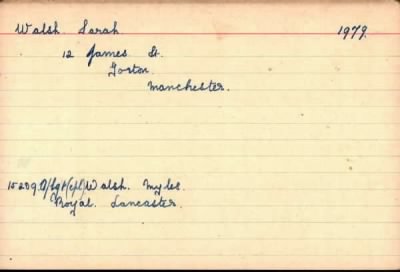 Walsh. Sarah 1979.
12 James St.
Gorton.
Manchester.
15239. A/Sgt (Cpl) Walsh. Myles.
Royal. Lancaster.